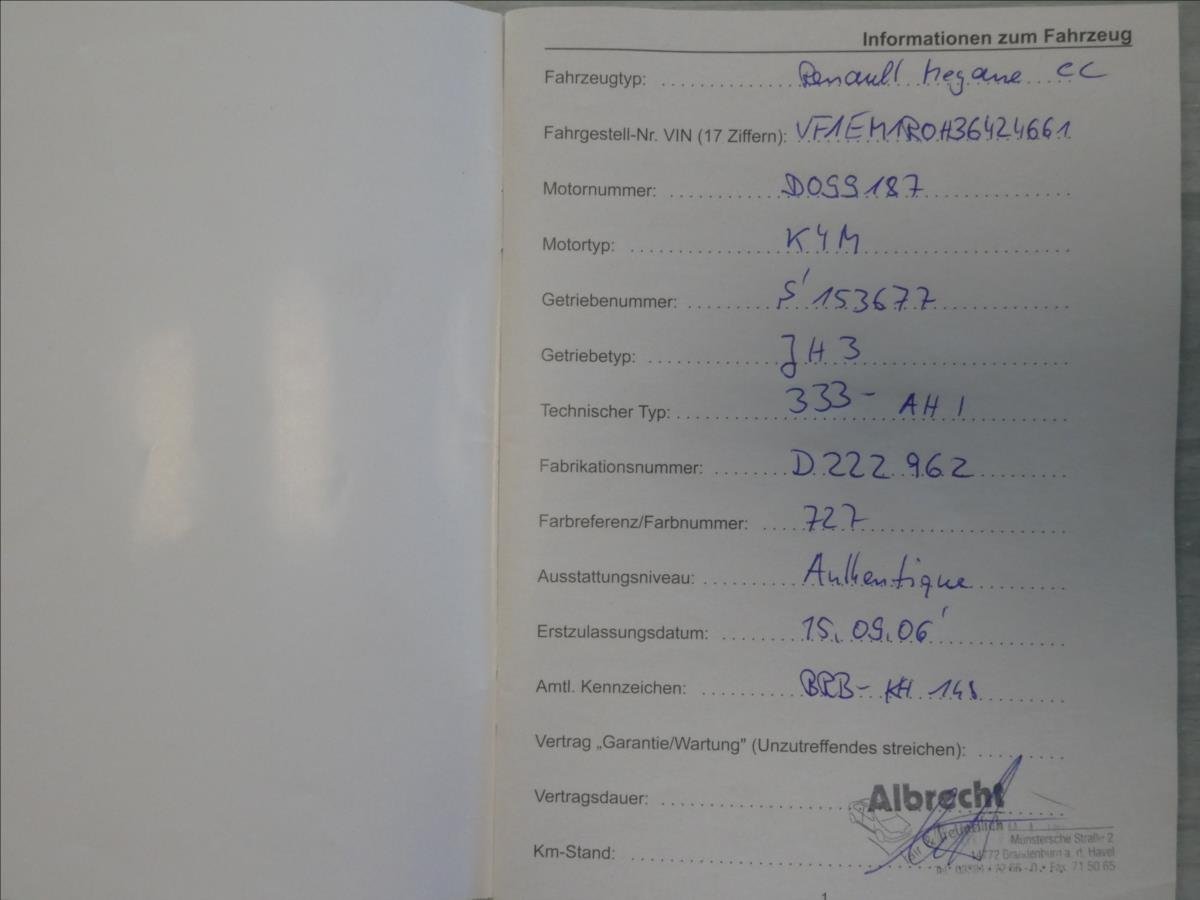 Informationen zum Fahrzeug
Fahrzeugtyp: Renault Megane CC
Fahrgestell-Nr. VIN (17 Ziffern): VF1EM1R0H36424661
Motornummer: D099187
Motortyp: K4M
Getriebenummer: S' 153677
Getriebetyp: JH3
Technischer Typ: 333- AH1
Fabrikationsnummer: D222962
Farbreferenz/Farbnummer: 727
Ausstattungsniveau: Authentique
Erstzulassungsdatum: 15.09.06
Amtl. Kennzeichen: BRB- KH 148
Vertrag „Garantie/Wartung" (Unzutreffendes streichen):
Vertragsdauer:
Albrecht
fair & freundlich
Münstersche Straße 2
Km-Stand:
14772 Brandenburg a. d. Havel
Fax 71 50 65
1